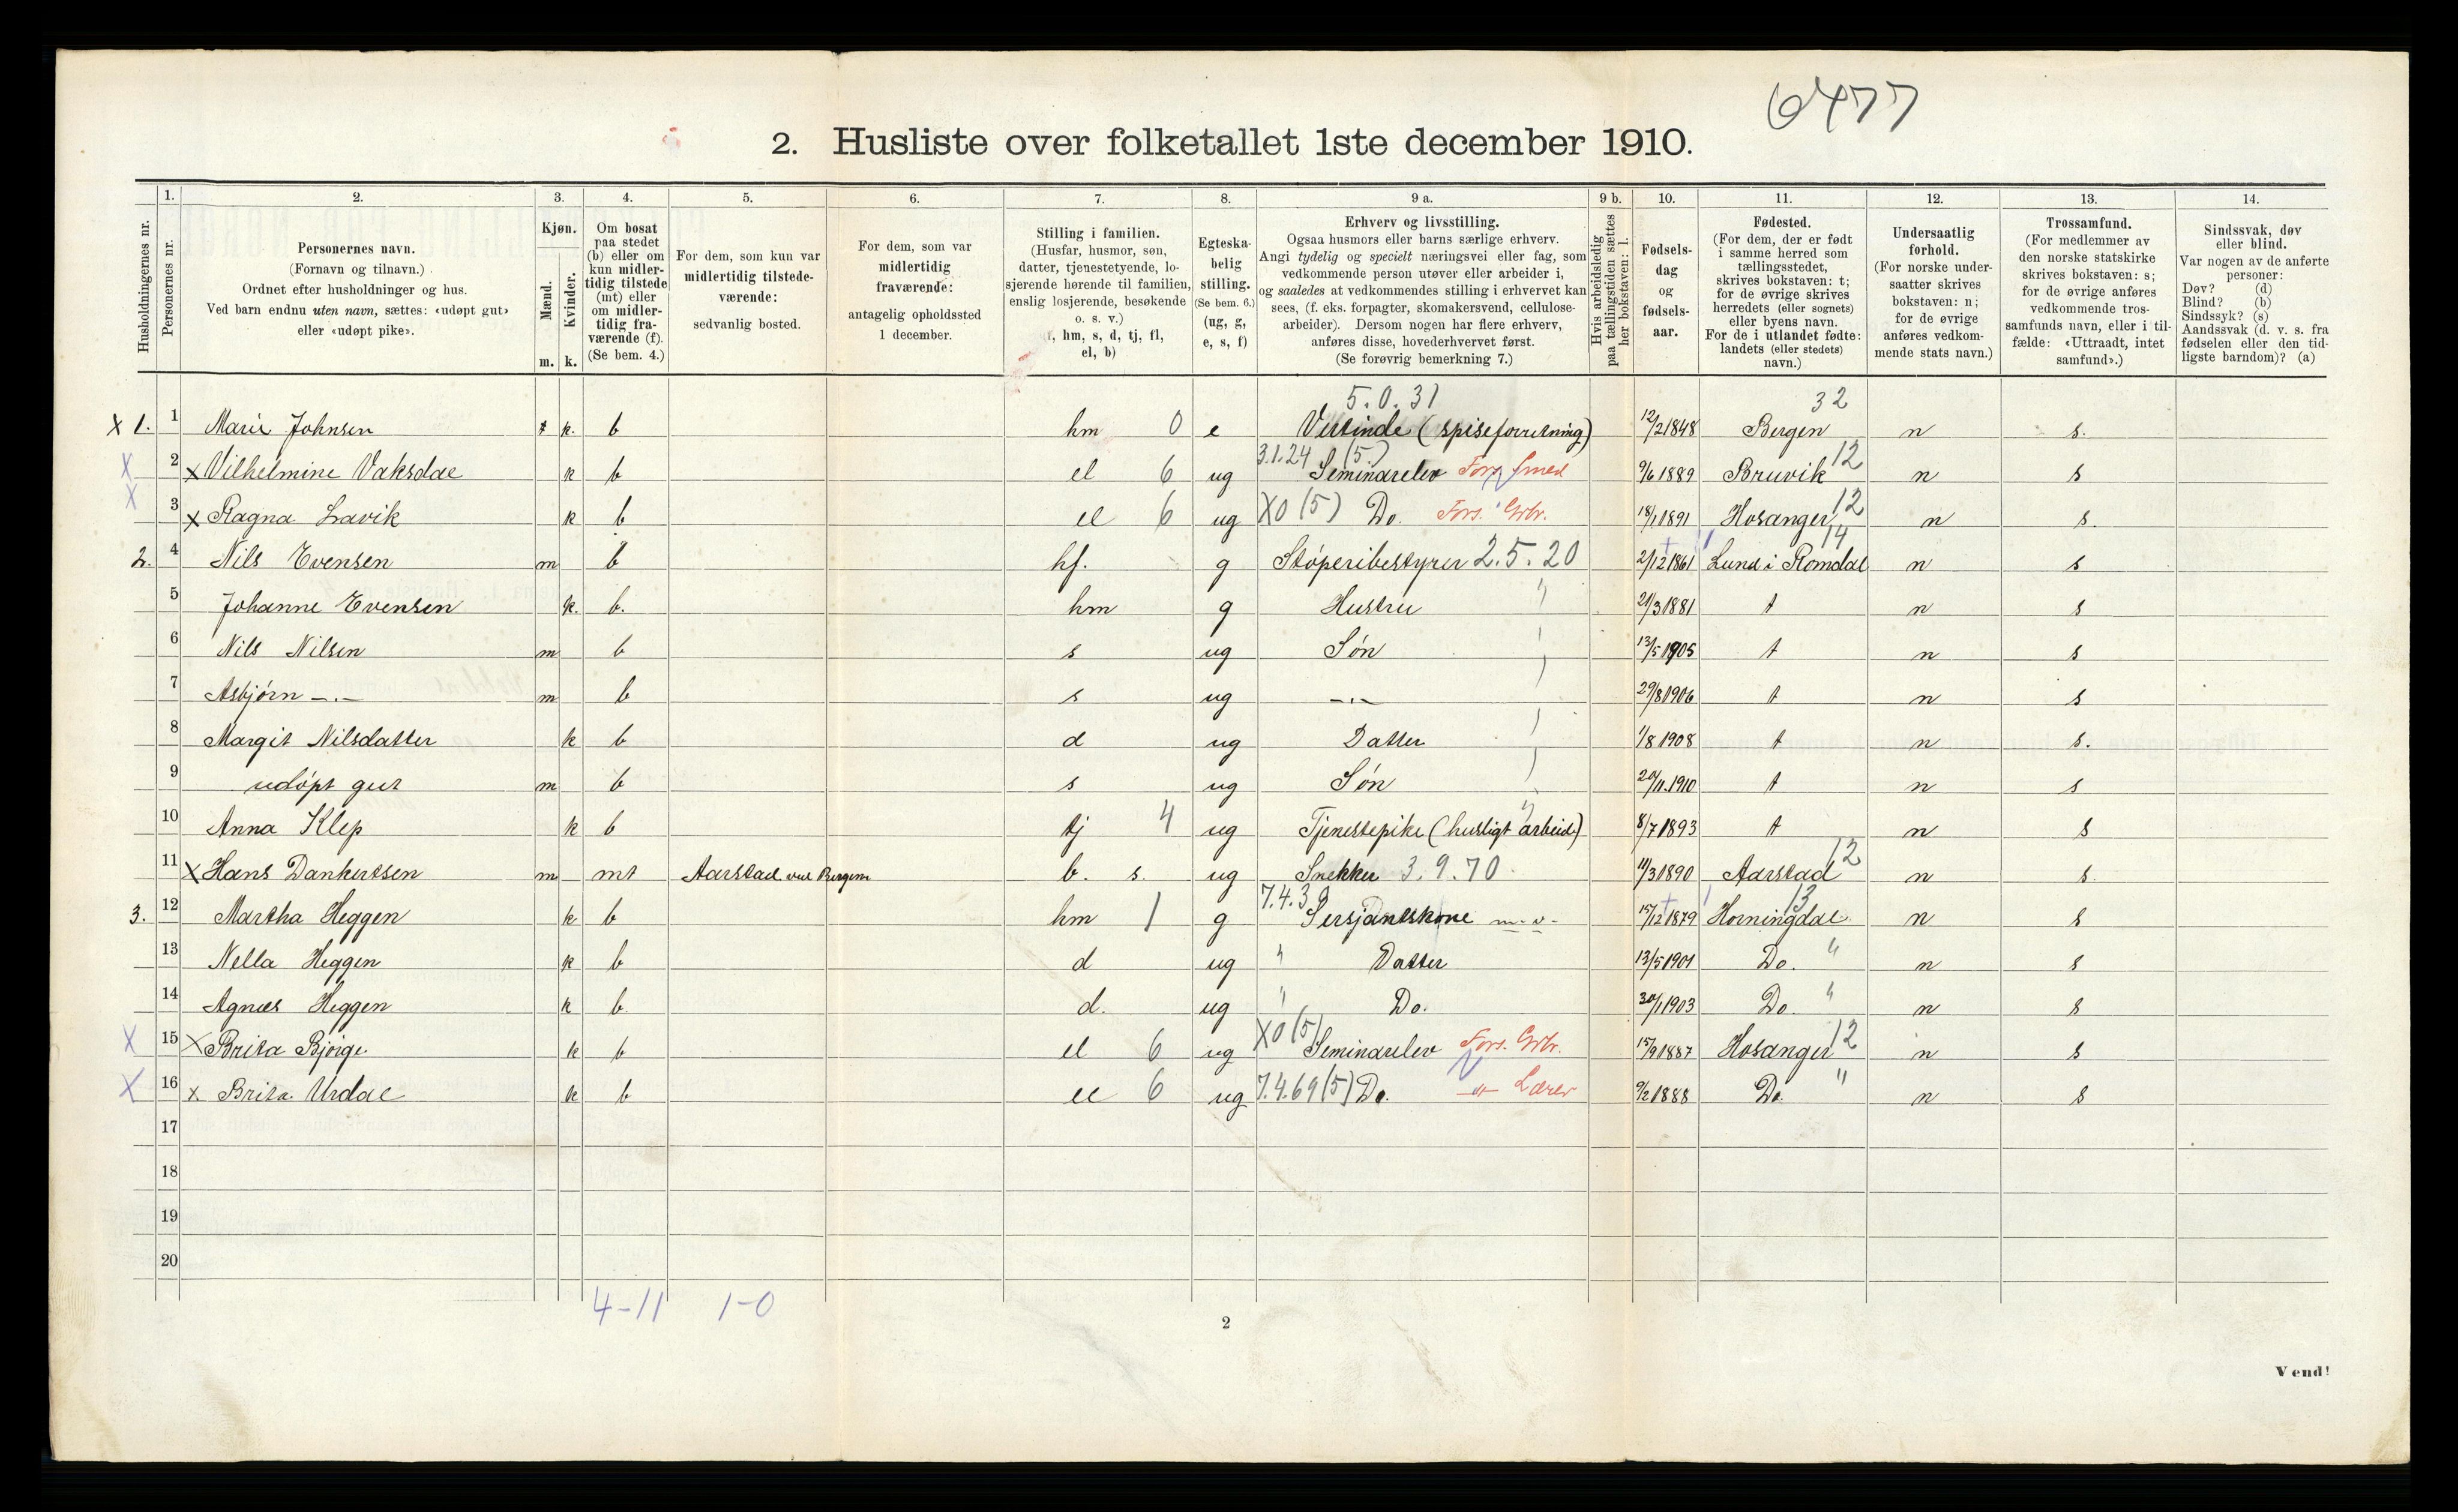 6477
2. Husliste over folketallet 1ste december 1910.
Husholdningernes nr.
1. Personernes nr.
2. Personernes navn. (Fornavn og tilnavn.) Ordnet efter husholdninger og hus. Ved barn endnu uten navn, sættes: «udøpt gut» eller «udøpt pike».
3. Kjøn. Mænd. m. Kvinder. k.
4. Om bosat paa stedet (b) eller om kun midlertidig tilstede (mt) eller om midlertidig fraværende (f). (Se bem. 4.)
5. For dem, som kun var midlertidig tilstedeværende: sedvanlig bosted.
6. For dem, som var midlertidig fraværende: antagelig opholdssted 1 december.
7. Stilling i familien. (Husfar, husmor, søn, datter, tjenestetyende, losjerende hørende til familien, enslig losjerende, besøkende o. s. v.) f, hm, s, d, tj, fl, el, b)
8. Egteskabelig stilling. (Se bem. 6.) (ug, g, e, s, f)
9 a. Erhverv og livsstilling. Ogsaa husmors eller barns særlige erhverv. Angi tydelig og specielt næringsvei eller fag, som vedkommende person utøver eller arbeider i, og saaledes at vedkommendes stilling i erhvervet kan sees, (f. eks. forpagter, skomakersvend, cellulosearbeider). Dersom nogen har flere erhverv, anføres disse, hovederhvervet først. (Se forøvrig bemerkning 7.)
9 b. Hvis arbeidsledig paa tællingstiden sættes her bokstaven: l.
10. Fødselsdag og fødselsaar.
11. Fødested. (For dem, der er født i samme herred som tællingsstedet, skrives bokstaven: t; for de øvrige skrives herredets (eller sognets) eller byens navn. For de i utlandet fødte: landets (eller stedets) navn.)
12. Undersaatlig forhold. (For norske undersaatter skrives bokstaven: n; for de øvrige anføres vedkommende stats navn.)
13. Trossamfund. (For medlemmer av den norske statskirke skrives bokstaven: s; for de øvrige anføres vedkommende trossamfunds navn, eller i tilfælde: «Uttraadt, intet samfund».)
14. Sindssvak, døv eller blind. Var nogen av de anførte personer: Døv? (d) Blind? (b) Sindssyk? (s) Aandssvak (d. v. s. fra fødselen eller den tidligste barndom)? (a)
5.0.31 32
X 1. 1 Marie Johnsen k. b hm 0 e Vertinde (spiseforretning) 12/2 1848 Bergen n s.
X 2 X Vilhelmine Vaksdal k b el 6 ug 3.1.24 (5) Seminarelev Fors. Smed 9/6 1889 Bruvik 12 n s
X 3 X Ragna Lavik k b el 6 ug X0 (5) Do. Fors. Grbr. 18/1 1891 Hosanger 12 n s.
2. 4 Nils Evensen m b hf. g Støperibestyrer 2.5.20 2/12 1861 Lund i Romdal 14 n s
5 Johanne Evensen k. b. hm g Hustru " 21/3 1881 t n s
6 Nils Nilsen m b s ug Søn 13/5 1905 t n s
7 Asbjørn -.- m b s ug -.- 29/8 1906 t n s
8 Margit Nilsdatter k b d ug Datter 1/8 1908 t n s.
9 udøpt gut m b s ug Søn 20/11.1910 t n s
10 Anna Klep k b tj 4 ug Tjenestepike (husligt arbeid) 8/7 1893 t n s
11 X Hans Dankertsen m mt Aarstad ved Bergen b. s. ug Snekker 3.9.70 11/3 1890 Aarstad 12 n s.
3. 12 Martha Heggen k b hm 1 g 7.4.39 Sersjantskone m.v. 15/12 1879 Horningdal 13 n s
13 Nella Heggen k b d ug " Datter 13/5 1901 Do. " n s
14 Agnes Heggen k b. d. ug " Do. 30/1 1903 Do. " n s
X 15 X Brita Bjørge k b el 6 ug X0 (5) Seminarelev Fors. Grbr. 15/9 1887 Hosanger 12 n s
X 16 x Brita Urdal k b el 6 ug 7.4.69 (5) Do. Lærer 9/2 1888 Do. " n s
17
18
19
20
4-11 1-0
2
Vend!